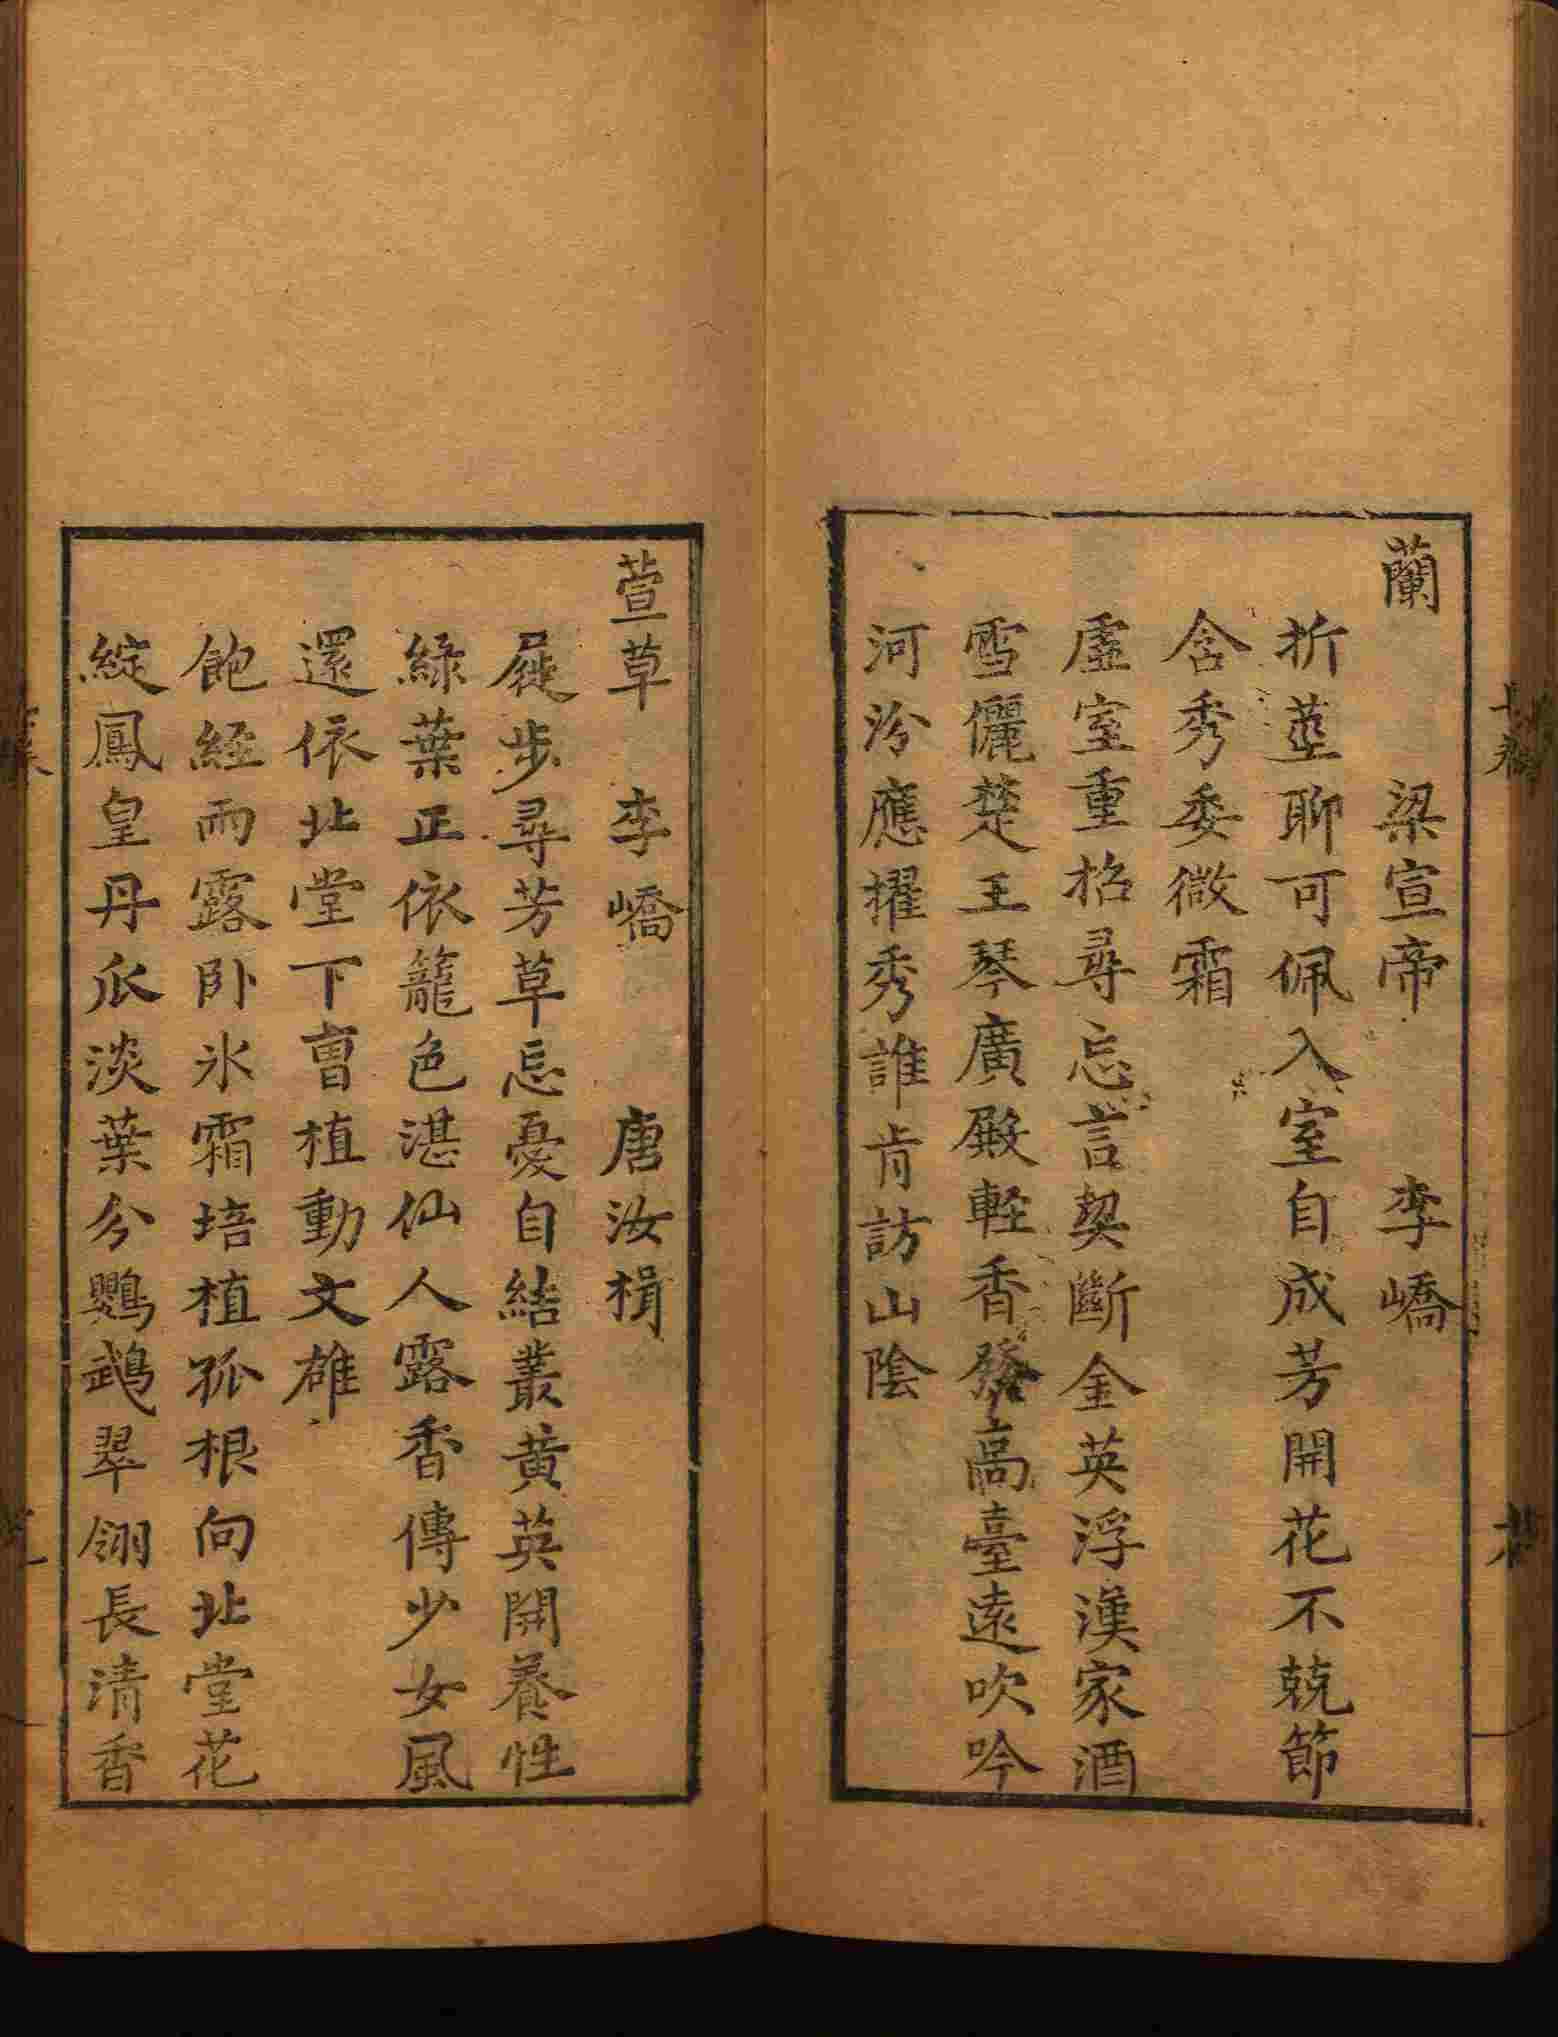 蘭　梁宣帝　李嶠
折莖聊可佩入室自成芳開花不兢節
含秀委微霜
虛室重招尋忘言契斷金英浮漢家酒
雪儷楚王琴廣殿輕香發高臺遠吹吟
河汾應擢秀誰肯訪山陰
萱草　李嶠　唐汝楫
屣步尋芳草忘憂自結叢黃英開養性
綠葉正依籠色湛仙人露香傳少女風
還依北堂下曺植動文雄
飽經雨露卧氷霜培植孤根向北堂花
綻鳳皇丹爪淡葉分鸚鵡翠翎長清香